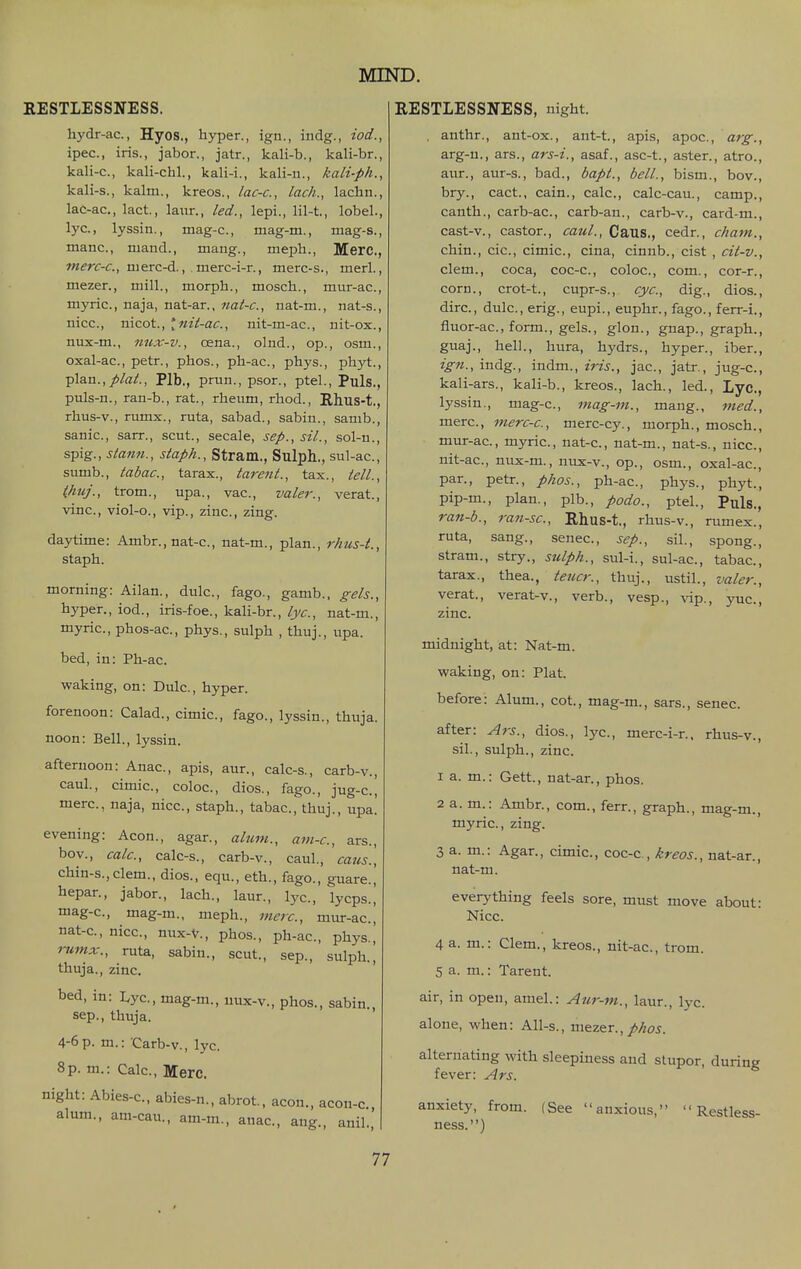 MIND.
RESTLESSNESS.
hydr-ac., Hyos., hyper., ign., indg., iod.,
ipec., iris., jabor., jatr., kali-b., kali-br.,
kali-c., kali-chl., kali-i., kali-n., kali-ph.,
kali-s., kalm., kreos., lac-c., lach., lachn.,
lac-ac., lact., laur., led., lepi., lil-t., lobel.,
lyc., lyssin., mag-c., mag-m., mag-s.,
manc., mand., mang., meph., Merc.,
merc-c., merc-d., merc-i-r., merc-s., merl.,
mezer., mill., morph., mosch., mur-ac.,
myric., naja, nat-ar., nat-c., nat-m., nat-s.,
nicc., nicot., nit-ac., nit-m-ac., nit-ox.,
nux-m., nux-v., œna., olnd., op., osm.,
oxal-ac., petr., phos., ph-ac., phys., phyt.,
plan., plat., Plb., prun., psor., ptel., Puls.,
puls-n., ran-b., rat., rheum, rhod., Rhus-t.,
rhus-v., rumx., ruta, sabad., sabin., samb.,
sanic., sarr., scut., secale, sep., sil., sol-n.,
spig., stann., staph., Stram., Sulph., sul-ac.,
sumb., tabac., tarax., tarent., tax., tell.,
thuj., trom., upa., vac., valer., verat.,
vinc., viol-o., vip., zinc., zing.
daytime: Ambr., nat-c., nat-m., plan., rhus-t.,
staph.
morning: Ailan., dulc., fago., gamb., gels.,
hyper., iod., iris-foe., kali-br., lyc., nat-m.,
myric., phos-ac., phys., sulph , thuj., upa.
bed, in: Ph-ac.
waking, on: Dulc., hyper.
forenoon: Calad., cimic., fago., lyssin., thuja.
noon: Bell., lyssin.
afternoon: Anac., apis, aur., calc-s., carb-v.,
caul., cimic., coloc., dios., fago., jug-c.,
merc., naja, nicc., staph., tabac., thuj., upa.
evening: Acon., agar., alum., am-c., ars.,
bov., calc., calc-s., carb-v., caul., caus.,
chin-s., clem., dios., equ., eth., fago., guare.,
hepar., jabor., lach., laur., lyc., lycps.,
mag-c., mag-m., meph., merc., mur-ac.,
nat-c., nicc., nux-v., phos., ph-ac., phys.,
rumx., ruta, sabin., scut., sep., sulph.,
thuja., zinc.
bed, in: Lyc., mag-m., nux-v., phos., sabin.,
sep., thuja.
4-6 p. m.: Carb-v., lyc.
8 p. m.: Calc., Merc.
night: Abies-c., abies-n., abrot., acon., acon-c.,
alum., am-cau., am-m., anac., ang., anil.,
RESTLESSNESS, night.
anthr., ant-ox., ant-t., apis, apoc., arg.,
arg-n., ars., ars-i., asaf., asc-t., aster., atro.,
aur., aur-s., bad., bapt., bell., bism., bov.,
bry., cact., cain., calc., calc-cau., camp.,
canth., carb-ac., carb-an., carb-v., card-m.,
cast-v., castor., caul., Caus., cedr., cham.,
chin., cic., cimic., cina, cinnb., cist , cit-v.,
clem., coca, coc-c., coloc., com., cor-r.,
corn., crot-t., cupr-s., cyc., dig., dios.,
dirc., dulc., erig., eupi., euphr., fago., ferr-i.,
fluor-ac., form., gels., glon., gnap., graph.,
guaj., hell., hura, hydrs., hyper., iber.,
ign., indg., indm., iris., jac., jatr., jug-c.,
kali-ars., kali-b., kreos., lach., led., Lyc.,
lyssin., mag-c., mag-m., mang., med.,
merc., merc-c., merc-cy., morph., mosch.,
mur-ac., myric., nat-c., nat-m., nat-s., nicc.,
nit-ac., nux-m., nux-v., op., osm., oxal-ac.,
par., petr., phos., ph-ac., phys., phyt.,
pip-m., plan., plb., podo., ptel., Puls.,
ran-b., ran-sc., Rhus-t., rhus-v., rumex.,
ruta, sang., senec., sep., sil., spong.,
stram., stry., sulph., sul-i., sul-ac., tabac.,
tarax., thea., teucr., thuj., ustil., valer.,
verat., verat-v., verb., vesp., vip., yuc.,
zinc.
midnight, at: Nat-m.
waking, on: Plat.
before: Alum., cot., mag-m., sars., senec.
after: Ars., dios., lyc., merc-i-r., rhus-v.,
sil., sulph., zinc.
1 a. m.: Gett., nat-ar., phos.
2 a. m.: Ambr., com., ferr., graph., mag-m.,
myric., zing.
3 a. m.: Agar., cimic., coc-c., kreos., nat-ar.,
nat-m.
everything feels sore, must move about:
Nicc.
4 a. m.: Clem., kreos., nit-ac., trom.
5 a. m.: Tarent.
air, in open, amel.: Aur-m., laur., lyc.
alone, when: All-s., mezer., phos.
alternating with sleepiness and stupor, during
fever: Ars.
anxiety, from. (See "anxious," "Restless-
ness.")
77